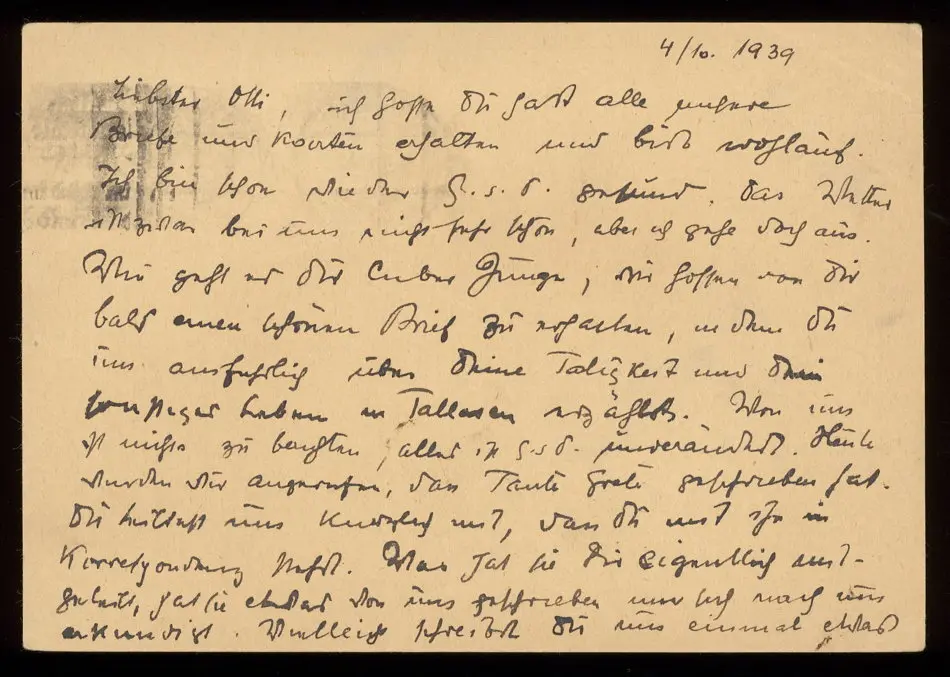 4/10. 1939
Liebster Otti, ich hoffe du hast alle unsere
Briefe und Karten erhalten und bist wohlauf.
Ich bin schon wieder G.s.d. gesund. Das Wetter
ist zwar bei uns nicht sehr schön, aber ich gehe doch aus.
Wie geht es dir lieber Junge, wir hoffen von dir
bald einen schönen Brief zu erhalten, in dem du
uns ausführlich über deine Tätigkeit und dein
sonstiges Leben in erzählst. Von uns
ist nichts zu berichten, alles ist G.s.d. unverändert. Heute
wurden wir angerufen, dass Tante Grete geschrieben hat.
Du teiltest uns kürzlich mit, dass du mit ihr in
Korrespondenz stehst. Was hat sie dir eigentlich mit-
geteilt, hat sie etwas von uns geschrieben und sich nach uns
erkundigt. Vielleicht schreibst du uns einmal etwas